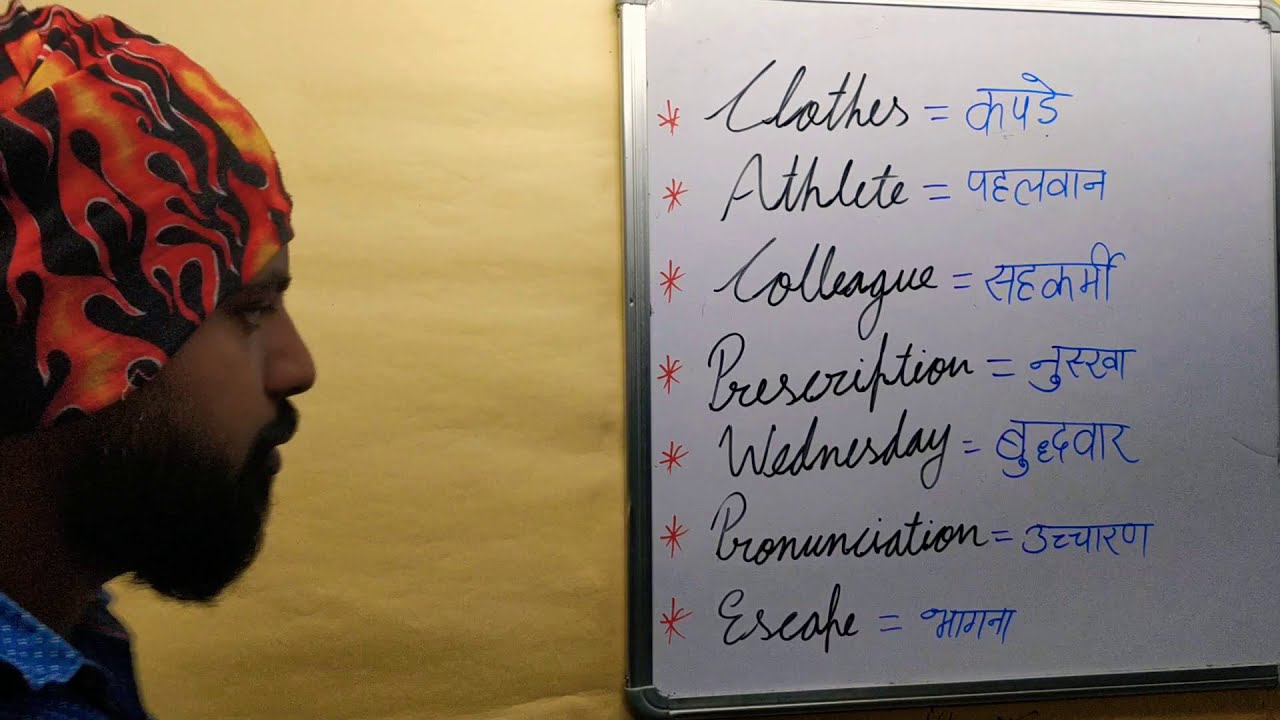 * Clothes = कपडे़
* Athlete = पहलवान
* Colleague = सहकर्मी
* Prescription = नुस्खा
* Wednesday = बुद्धवार
* Pronunciation = उच्चारण
* Escape = भागना